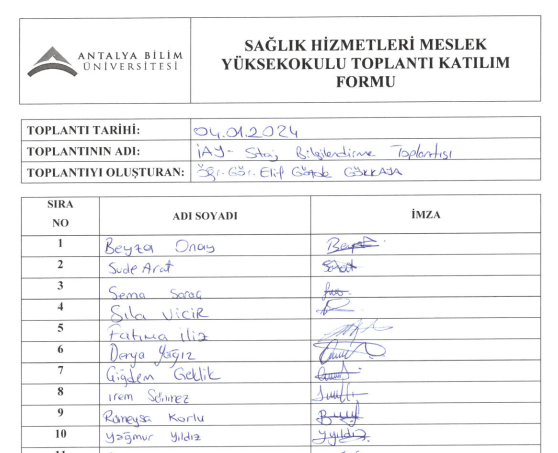 ANTALYA BİLİM
ÜNİVERSİTESİ
SAĞLIK HİZMETLERİ MESLEK
YÜKSEKOKULU TOPLANTI KATILIM
FORMU
TOPLANTI TARİHİ: 04.01.2024
TOPLANTININ ADI: İAY- Staj Bilgilendirme Toplantısı
TOPLANTIYI OLUŞTURAN: Öğr. Gör. Elif GÖKKAYA
SIRA
NO
ADI SOYADI
İMZA
1 Beyza Onay
2 Sude Arat
3 Sema Saraç
4 Sıla
5 Fatıma
6 Derya Yağız
7 Çiğdem
8 irem
9 Rümeysa Korlu
10 Yağmur Yıldız